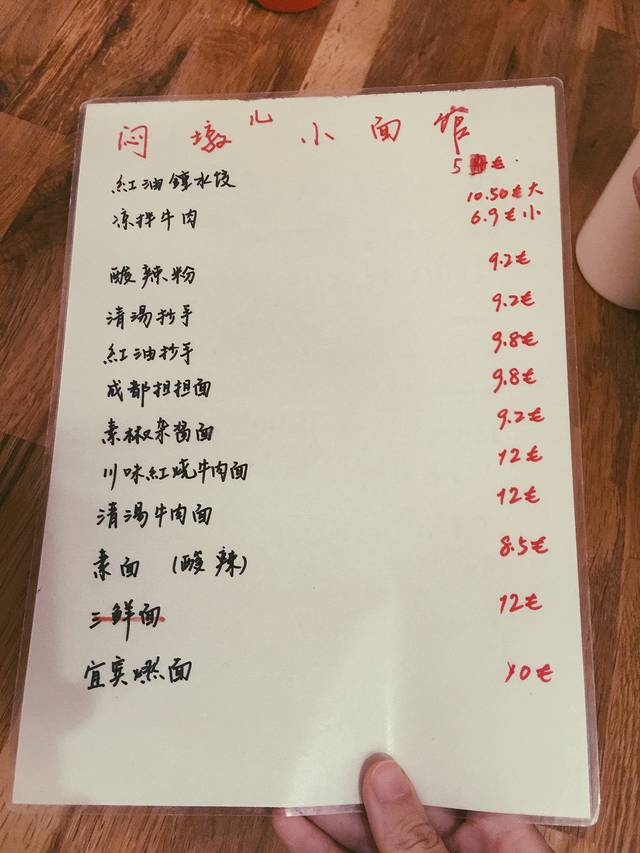 闷墩儿小面馆
紅油鐘水饺 5 €
凉拌牛肉 10.50€大
6.9€小
酸辣粉 9.2€
清湯抄手 9.2€
紅油抄手 9.8€
成都担担面 9.8€
素椒杂酱面 9.2€
川味紅烧牛肉面 12€
清湯牛肉面 12€
素面 (酸辣) 8.5€
三鲜面 12€
宜宾燃面 10€